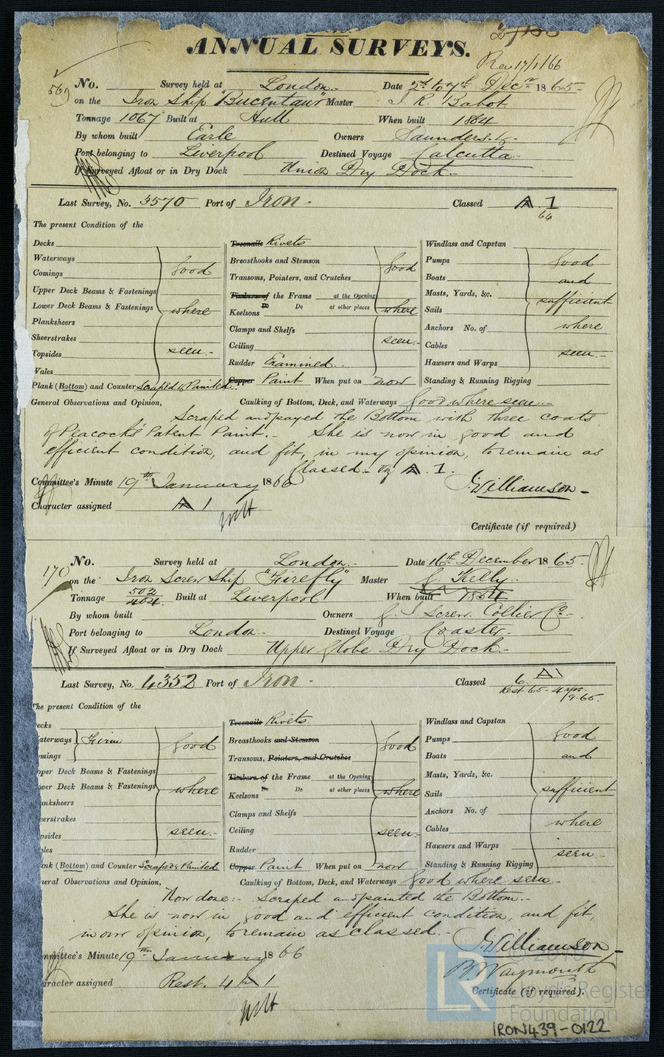 ANNUAL SURVEYS.
Rec 17/1/66
569 No. Survey held at London Date 5th to 7th Decr 1865.
on the Iron Ship "Bucentaur" Master J. R. Tabot
Tonnage 1067 Built at Hull When built 1864
By whom built Earle Owners Saunders &
Port belonging to Liverpool Destined Voyage Calcutta
If Surveyed Afloat or in Dry Dock Union Dry Dock.
Last Survey, No. 3570 Port of Iron. Classed A 1
64
The present Condition of the
Decks
Waterways
Comings
Upper Deck Beams & Fastenings
Lower Deck Beams & Fastenings
Planksheers
Sheerstrakes
Topsides
Wales
good
where
seen.
Plank (Bottom) and Counter Scraped & Painted
Treenails Rivets
Breasthooks and Stemson
Transoms, Pointers, and Crutches
Timbers of the Frame at the Opening
Keelsons Do Do at other places
Clamps and Shelfs
Ceiling
Rudder Examined.
good
where
seen.
Copper Paint When put on now
Windlass and Capstan
Pumps
Boats
Masts, Yards, &c.
Sails
Anchors No. of
Cables
Hawsers and Warps
Standing & Running Rigging
good
and
sufficient
where
seen.
General Observations and Opinion, Caulking of Bottom, Deck, and Waterways good where seen.
Scraped and payed the Bottom with three coats
of Peacock's Patent Paint. She is now in good and
efficient condition, and fit, in my opinion, to remain as
Classed A 1.
Committee's Minute 19th January 1866
J. Williamson
Character assigned A 1
Certificate (if required)
170 No. Survey held at London Date 16th December 1865.
on the Iron Screw Ship "Firefly" Master J. Kelly
Tonnage 502 464 Built at Liverpool When built 1854
By whom built Owners J. S. Screw Collier Co.
Port belonging to London Destined Voyage Coaster.
If Surveyed Afloat or in Dry Dock Upper Globe Dry Dock.
Last Survey, No. 4352 Port of Iron. Classed 6 A 1
Rest 65 - 4 yrs
9.65.
The present Condition of the
Decks
Waterways
Comings
Upper Deck Beams & Fastenings
Lower Deck Beams & Fastenings
Planksheers
Sheerstrakes
Topsides
Wales
good
where
seen.
Plank (Bottom) and Counter Scraped & Painted
Treenails Rivets
Breasthooks and Stemson
Transoms, Pointers, and Crutches
Timbers of the Frame at the Opening
Keelsons Do Do at other places
Clamps and Shelfs
Ceiling
Rudder
good
where
seen.
Copper Paint When put on now
Windlass and Capstan
Pumps
Boats
Masts, Yards, &c.
Sails
Anchors No. of
Cables
Hawsers and Warps
Standing & Running Rigging
good
and
sufficient
where
seen.
General Observations and Opinion, Caulking of Bottom, Deck, and Waterways good where seen.
Now done:- Scraped and painted the Bottom.
She is now in good and efficient condition, and fit,
in our opinion, to remain as classed.
J. Williamson
Committee's Minute 19th January 1866
B. Waymouth
Character assigned Rest. 4 A 1
Certificate (if required).
LR
Lloyd's Register
Foundation
IRON439-0122